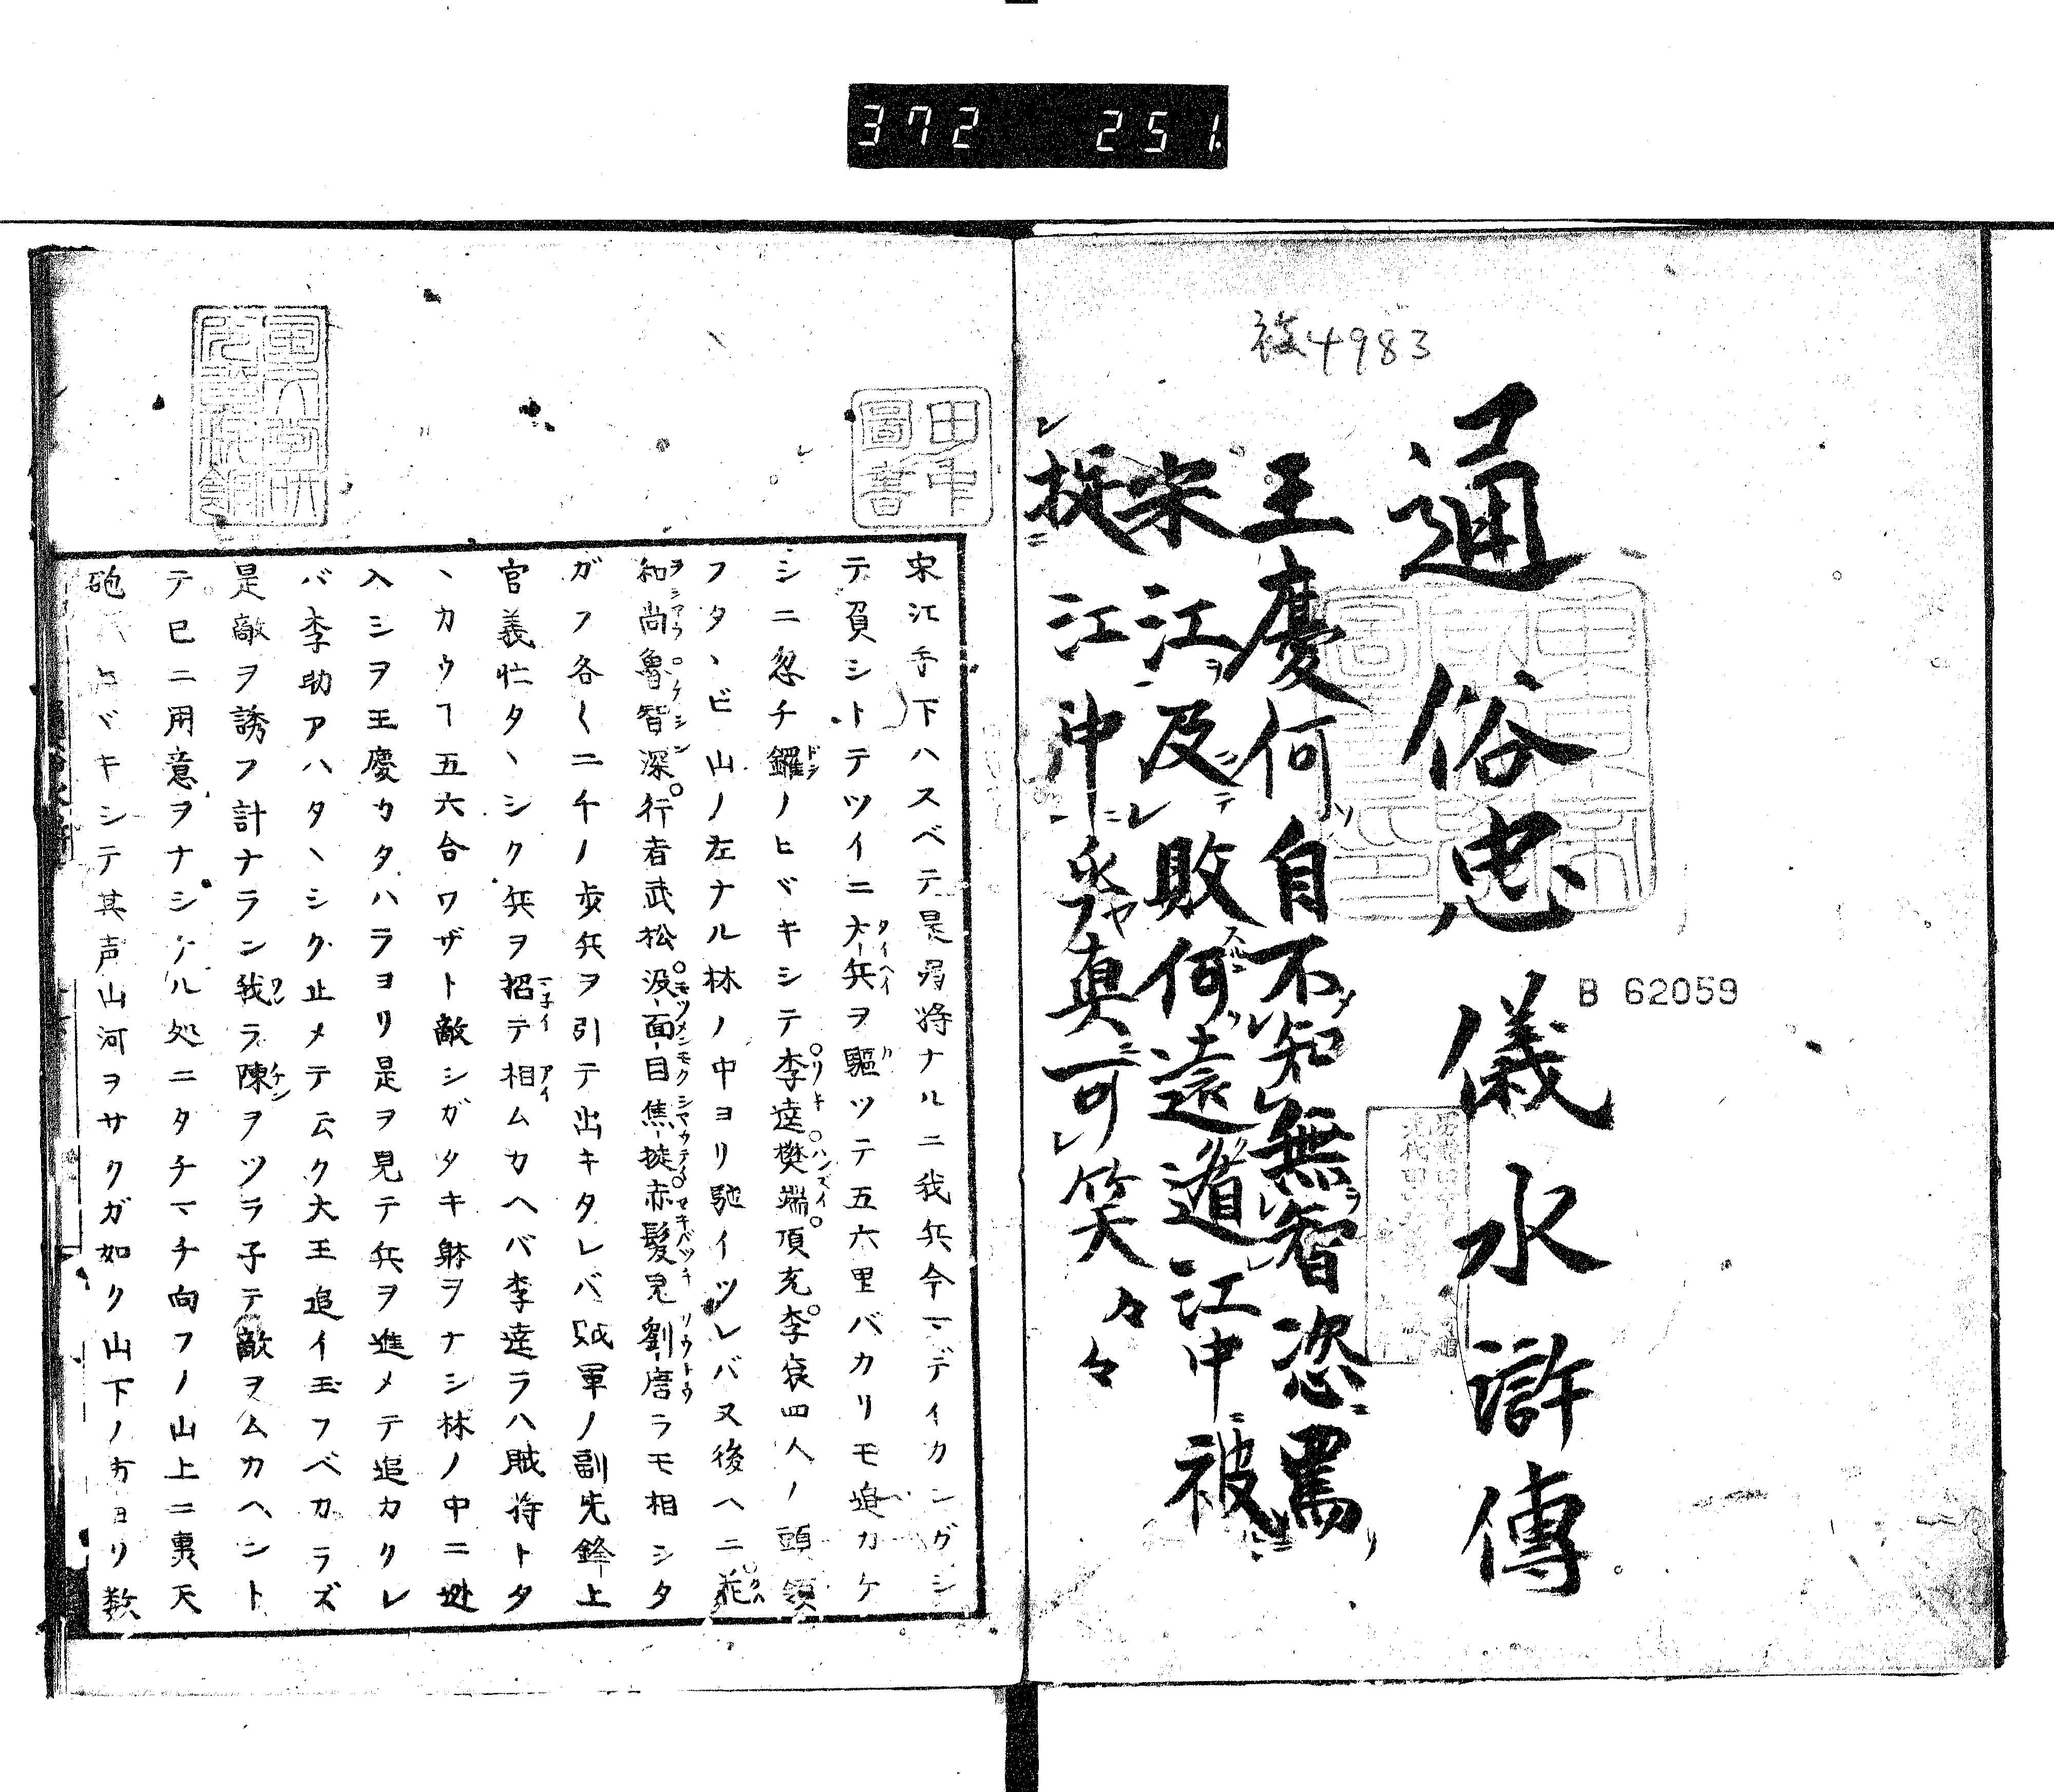 372 251.
被4983
通俗忠儀水滸傳
B 62059
王慶何自不知無智恣罵
宋江及敗何遠遁江中被
捉江冲 真可笑々々
田中圖書
宋江手下ハスベテ是弱将ナルニ我兵今マデイカンガシ
テ負シトテツイニ大兵ヲ驅ツテ五六里バカリモ追カケ
シニ忽チ鑼ノヒヾキシテ李逵樊端頂充李袞四人ノ頭領
フタヽビ山ノ左ナル林ノ中ヨリ馳イツレバ又後ヘニ花
和尚魯智深行者武松没面目焦挺赤髪鬼劉唐ラモ相シタ
ガフ各〱二千ノ歩兵ヲ引テ出キタレバ賊軍ノ副先鋒上
官義忙タヽシク兵ヲ招テ相ムカヘバ李逵ラハ賊将トタ
ヽカウヿ五六合ワザト敵シガタキ躰ヲナシ林ノ中ニ逃
入シヲ王慶カタハラヨリ是ヲ見テ兵ヲ進メテ追カクレ
バ李助アハタヽシク止メテ云ク大王追イ玉フベカラズ
是敵ヲ誘フ計ナラン我ラ陳ヲツラ子テ敵ヲムカヘント
テ已ニ用意ヲナシケル処ニタチマチ向フノ山上ニ轟天
砲 ヾキシテ其声山河ヲサクガ如ク山下ノ方ヨリ数